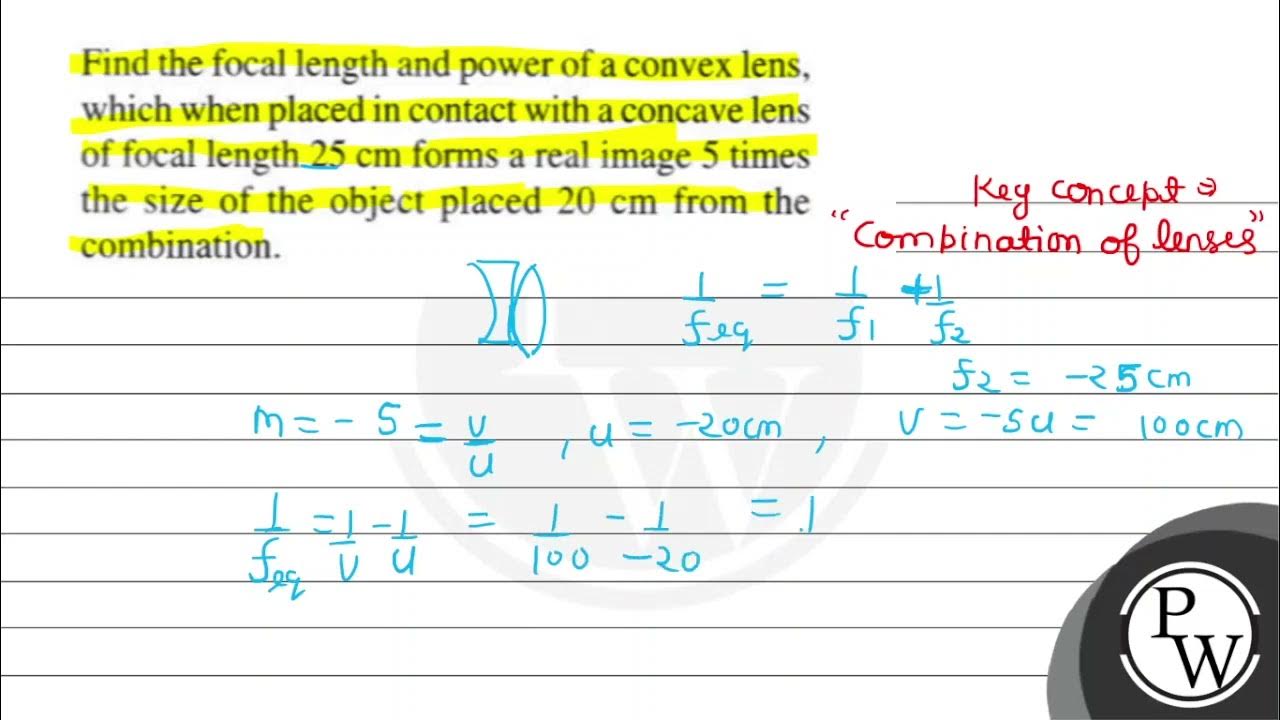 Find the focal length and power of a convex lens,
which when placed in contact with a concave lens
of focal length 25 cm forms a real image 5 times
the size of the object placed 20 cm from the
combination.
Key concept ⇒
"Combination of lenses"
1/feq = 1/f1 + 1/f2
f2 = -25 cm
m = - 5 = v/u , u = -20cm , v = -5u = 100cm
1/feq = 1/v - 1/u = 1/100 - 1/-20 = .1
PW